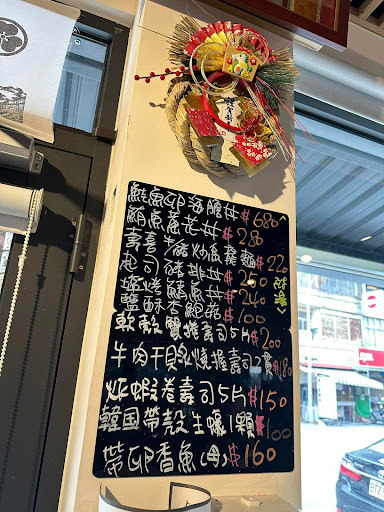 鮭魚卵海膽丼$680
鮪魚蔥花丼$280
壽喜牛燒炒烏龍麵$220
起司豬排丼$250
鹽烤鯖魚丼$240
鹽酥杏鮑菇$100
軟殼蟹握壽司5片$200
牛肉干貝炙燒握壽司2貫$180
炸蝦卷壽司5片$150
韓国帶殼生蠔1顆$100
帶卵香魚(母)$160